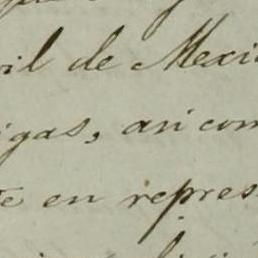 vil de Mexi
igas, asi com
te en repres